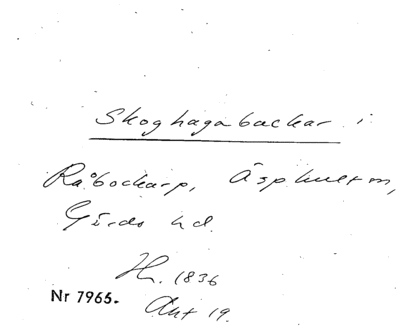 Skoghagabackar i
Råbockarp, Äsphult sn,
Gärds hd.
H. 1836
Nr 7965.
Akt 19.